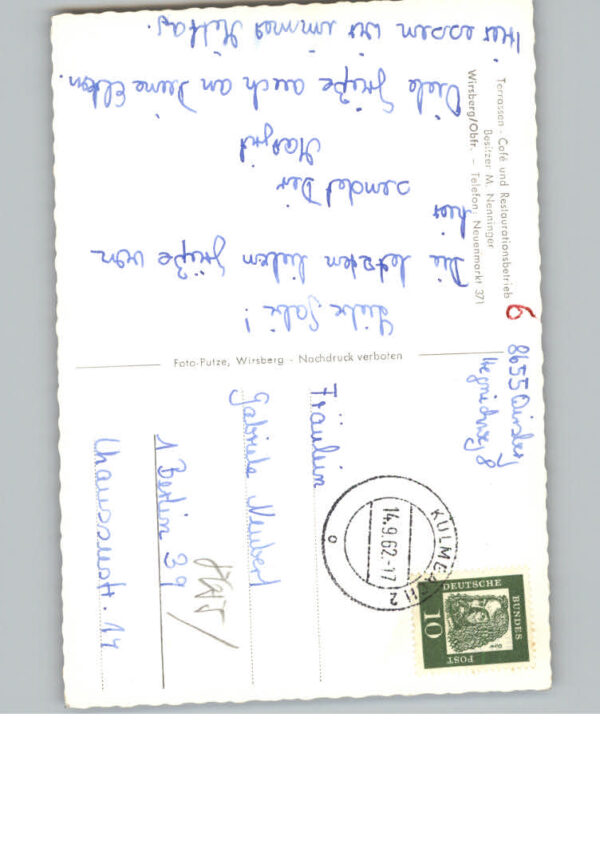 Terrassen - Café und Restaurationsbetrieb
Besitzer M. Nenninger
Wirsberg/Obfr. - Telefon: Neuenmarkt 371
Liebe Gabi!
Die letzten lieben Grüße von
hier
sendet Dir
Margrit
Viele Grüße auch an Deine Eltern.
Hier essen wir immer Mittag.
Foto-Putze, Wirsberg - Nachdruck verboten
6
8655 Wirsberg
KULMBACH 2
14.9.62-17
DEUTSCHE
BUNDES
POST
10
Fräulein
Gabriele Neubert
1 Berlin 39
Chausseestr. 14